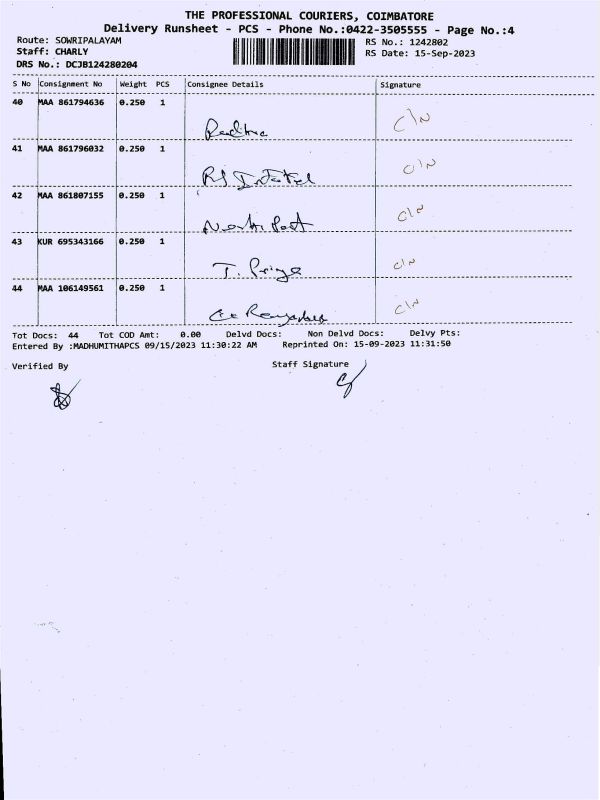 THE PROFESSIONAL COURIERS, COIMBATORE
Delivery Runsheet - PCS - Phone No.:0422-3505555 - Page No.:4
Route: SOWRIPALAYAM
RS No.: 1242802
Staff: CHARLY
RS Date: 15-Sep-2023
DRS No.: DCJB124280204
S No Consignment No Weight PCS Consignee Details Signature
40 MAA 861794636 0.250 1
C/N
41 MAA 861796032 0.250 1
C/N
42 MAA 861807155 0.250 1
C/N
43 KUR 695343166 0.250 1
T. Priya C/N
44 MAA 106149561 0.250 1
C/N
Tot Docs: 44 Tot COD Amt: 0.00 Delvd Docs: Non Delvd Docs: Delvy Pts:
Entered By :MADHUMITHAPCS 09/15/2023 11:30:22 AM Reprinted On: 15-09-2023 11:31:50
Verified By Staff Signature